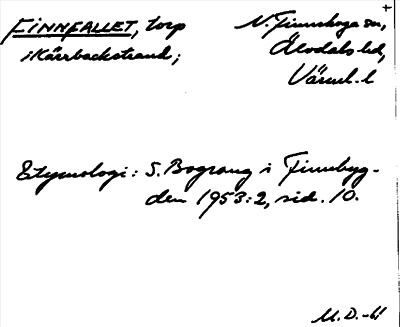 FINNFALLET, torp
i Kärrbackstrand;
N. Finnskoga sn,
Älvdals hd,
Värml. l
Etymologi: S. Bograng i Finnbyg-
den 1953:2, sid. 10.
M.D.-61